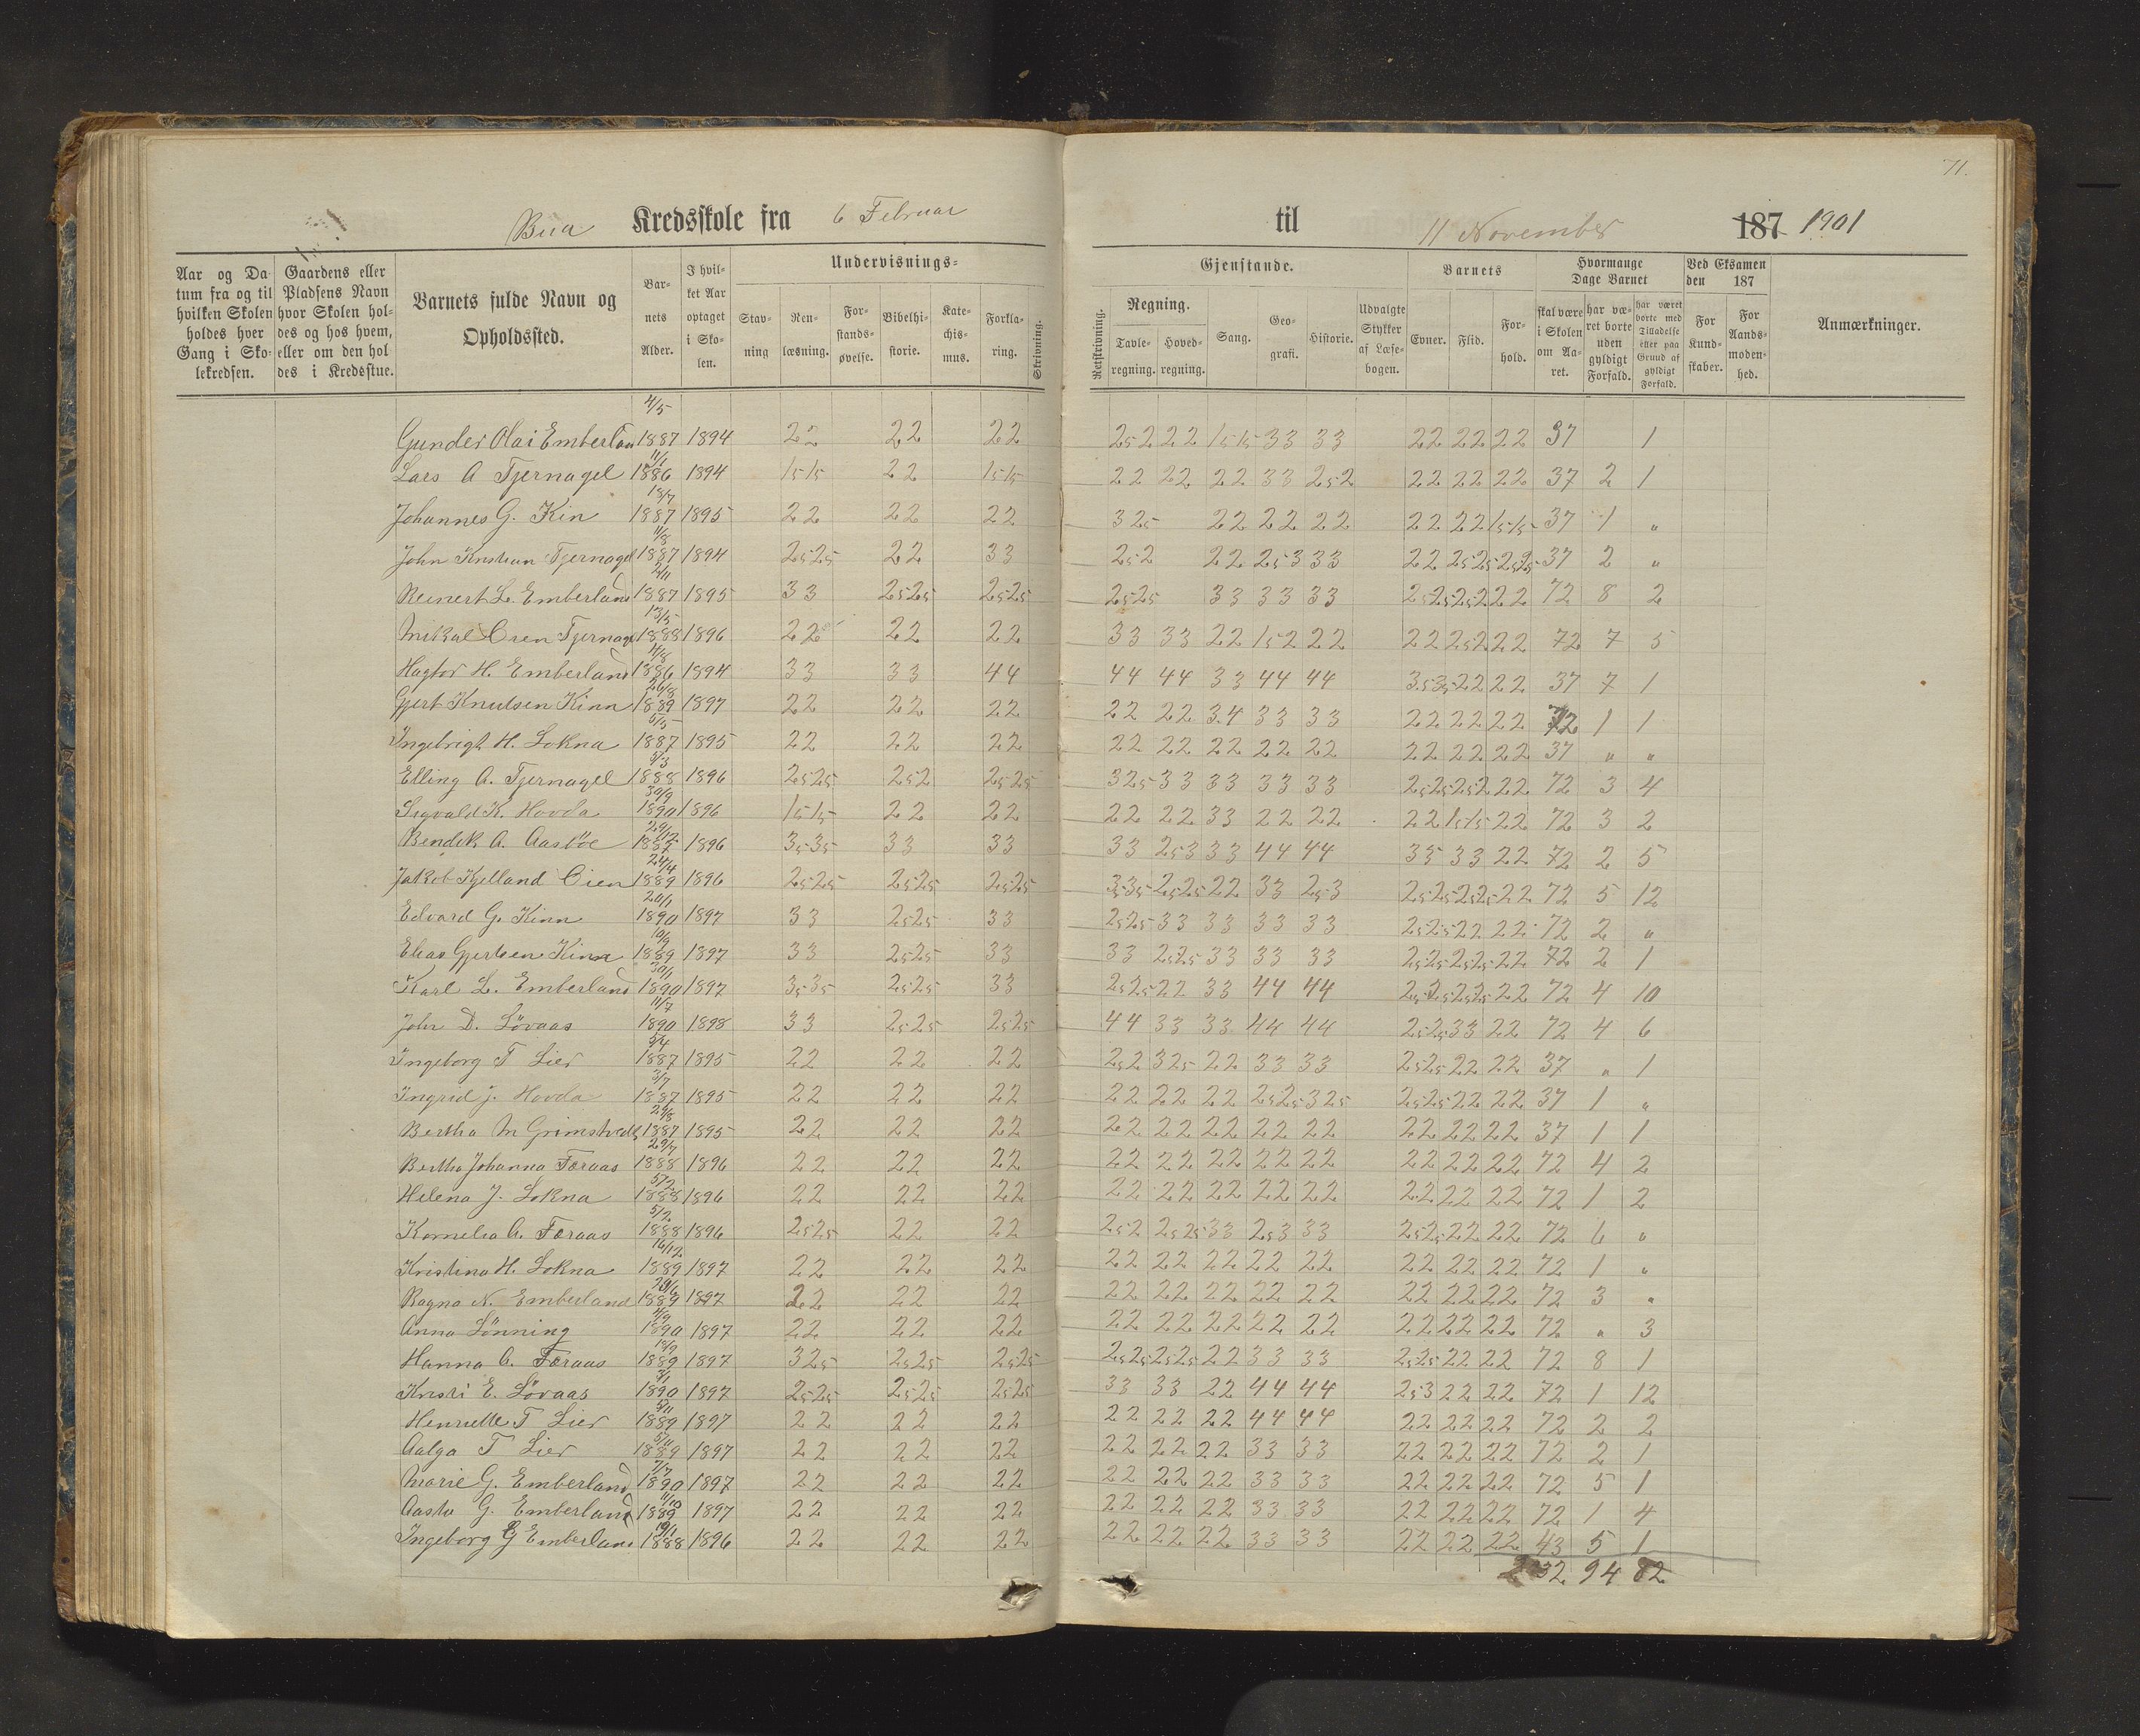 71.
Bua Kredsskole fra 6 Februar til 11 November 187 1901
Aar og Datum fra og til hvilken Skolen holdes hver Gang i Skolekredsen.
Gaardens eller Pladsens Navn hvor Skolen holdes og hos hvem, eller om den holdes i Kredsstue.
Barnets fulde Navn og Opholdssted.
Barnets Alder.
I hvilket Aar optaget i Skolen.
Undervisnings-Gjenstande.
Stavning
Renlæsning.
Forstandsøvelse.
Bibelhistorie.
Katechismus.
Forklaring.
Skrivning.
Retskrivning.
Regning.
Tavleregning.
Hovedregning.
Sang.
Geografi.
Historie.
Udvalgte Stykker af Læsebogen.
Barnets
Evner.
Flid.
Forhold.
Hvormange Dage Barnet
skal være i Skolen om Aaret.
har været borte uden gyldigt Forfald.
har været borte med Tilladelse eller paa Grund af gyldigt Forfald.
Ved Eksamen den 187
For Kundskaber.
For Aandsmodenhed.
Anmærkninger.
Gunder Olai Emberlan 4/5 1887 1894 22 22 22 252 22 1515 33 33 22 22 22 37 1
Lars A Tjernagel 11/1 1886 1894 1515 22 1515 22 22 22 33 252 22 22 22 37 2 1
Johannes G. Kin 18/7 1887 1895 22 22 22 325 22 22 22 22 22 1515 37 1 "
John Kristian Tjernagel 11/8 1887 1894 2525 22 33 252 22 253 33 22 2525 2525 37 2 "
Reinert L. Emberland 2/11 1887 1895 33 2525 2525 2525 33 33 33 2525 252 22 72 8 2
Mikal Oien Tjernagel 13/5 1888 1896 22 22 22 33 33 22 152 22 22 252 22 72 7 5
Hagtor H. Emberland 4/8 1886 1894 33 33 44 44 44 33 44 44 3535 22 22 37 7 1
Gjert Knutsen Kinn 26/8 1889 1897 22 22 22 22 22 3.4 33 33 22 22 22 72 1 1
Ingebrigt H. Lokna 6/5 1887 1895 22 22 22 22 22 22 22 22 22 22 22 37 " "
Elling A. Tjernagel 5/3 1888 1896 2525 252 2525 325 33 33 33 33 2525 252 22 72 3 4
Sigvald K. Hovda 30/9 1890 1896 1515 22 22 22 22 33 22 22 22 1515 22 72 3 2
Bendik A. Aasbøe 1896 3535 33 33 33 253 33 44 44 35 33 22 72 2 5
Jakob Kjelland Oien 24/4 1889 1896 2525 2525 2525 335 2525 22 33 253 2525 2525 22 72 5 12
Edvard G. Kinn 20/1 1890 1897 33 2525 33 2525 33 33 33 33 2525 22 22 72 2 "
Elias Gjertsen Kinn 10/9 1889 1897 33 2525 33 33 2525 33 33 33 2525 2525 22 72 2 1
Karl L. Emberland 30/1 1890 1897 3535 2525 33 2525 22 33 44 44 2525 2525 22 72 4 10
John D. Løvaas 11/7 1890 1898 33 2525 2525 44 33 33 44 44 2525 33 22 72 4 6
Ingeborg T Lier 1887 1895 22 22 22 252 325 22 33 33 2525 22 22 37 " 1
Ingrid J. Hovda 3/7 1887 1895 22 22 22 22 22 22 2525 325 2525 22 22 37 1 "
Bertha M Grimstvedt 29/8 1887 1895 22 22 22 22 22 22 22 22 22 22 22 37 1 1
Bertha Johanna Foraas 29/7 1888 1896 22 22 22 22 22 22 22 22 22 22 22 72 4 2
Helena J. Lokna 5/2 1888 1896 22 22 22 22 22 22 22 22 22 22 22 72 1 2
Kornelia A. Foraas 5/2 1888 1896 2525 22 22 252 2525 33 253 33 2525 22 22 72 6 "
Kristina H. Lokna 16/12 1889 1897 22 22 22 22 22 22 22 22 22 22 22 72 1 "
Ragna N. Emberland 1889 1897 22 22 22 22 22 22 22 22 22 22 22 72 3 "
Anna Lønning 1890 1897 22 22 22 22 22 22 22 22 22 22 22 72 " 3
Hanna A. Foraas 1889 1897 325 2525 2525 2525 2525 22 33 33 2525 22 22 72 8 1
Kristi E. Løvaas 1890 1897 2525 2525 2525 33 33 22 44 44 253 22 22 72 1 12
Henriette T Lier 5/11 1889 1897 22 22 22 22 22 22 44 44 22 22 22 72 2 2
Aalga T Lier 5/11 1889 1897 22 22 22 22 22 22 33 33 22 22 22 72 2 1
Marie G. Emberland 7/7 1890 1897 22 22 22 22 22 22 33 33 22 22 22 72 5 1
Aasta G. Emberland 11/10 1889 1897 22 22 22 22 22 22 33 33 22 22 22 72 1 4
Ingeborg G Emberland 19/1 1888 1896 22 22 22 22 22 22 33 33 22 22 22 43 5 1
94 82